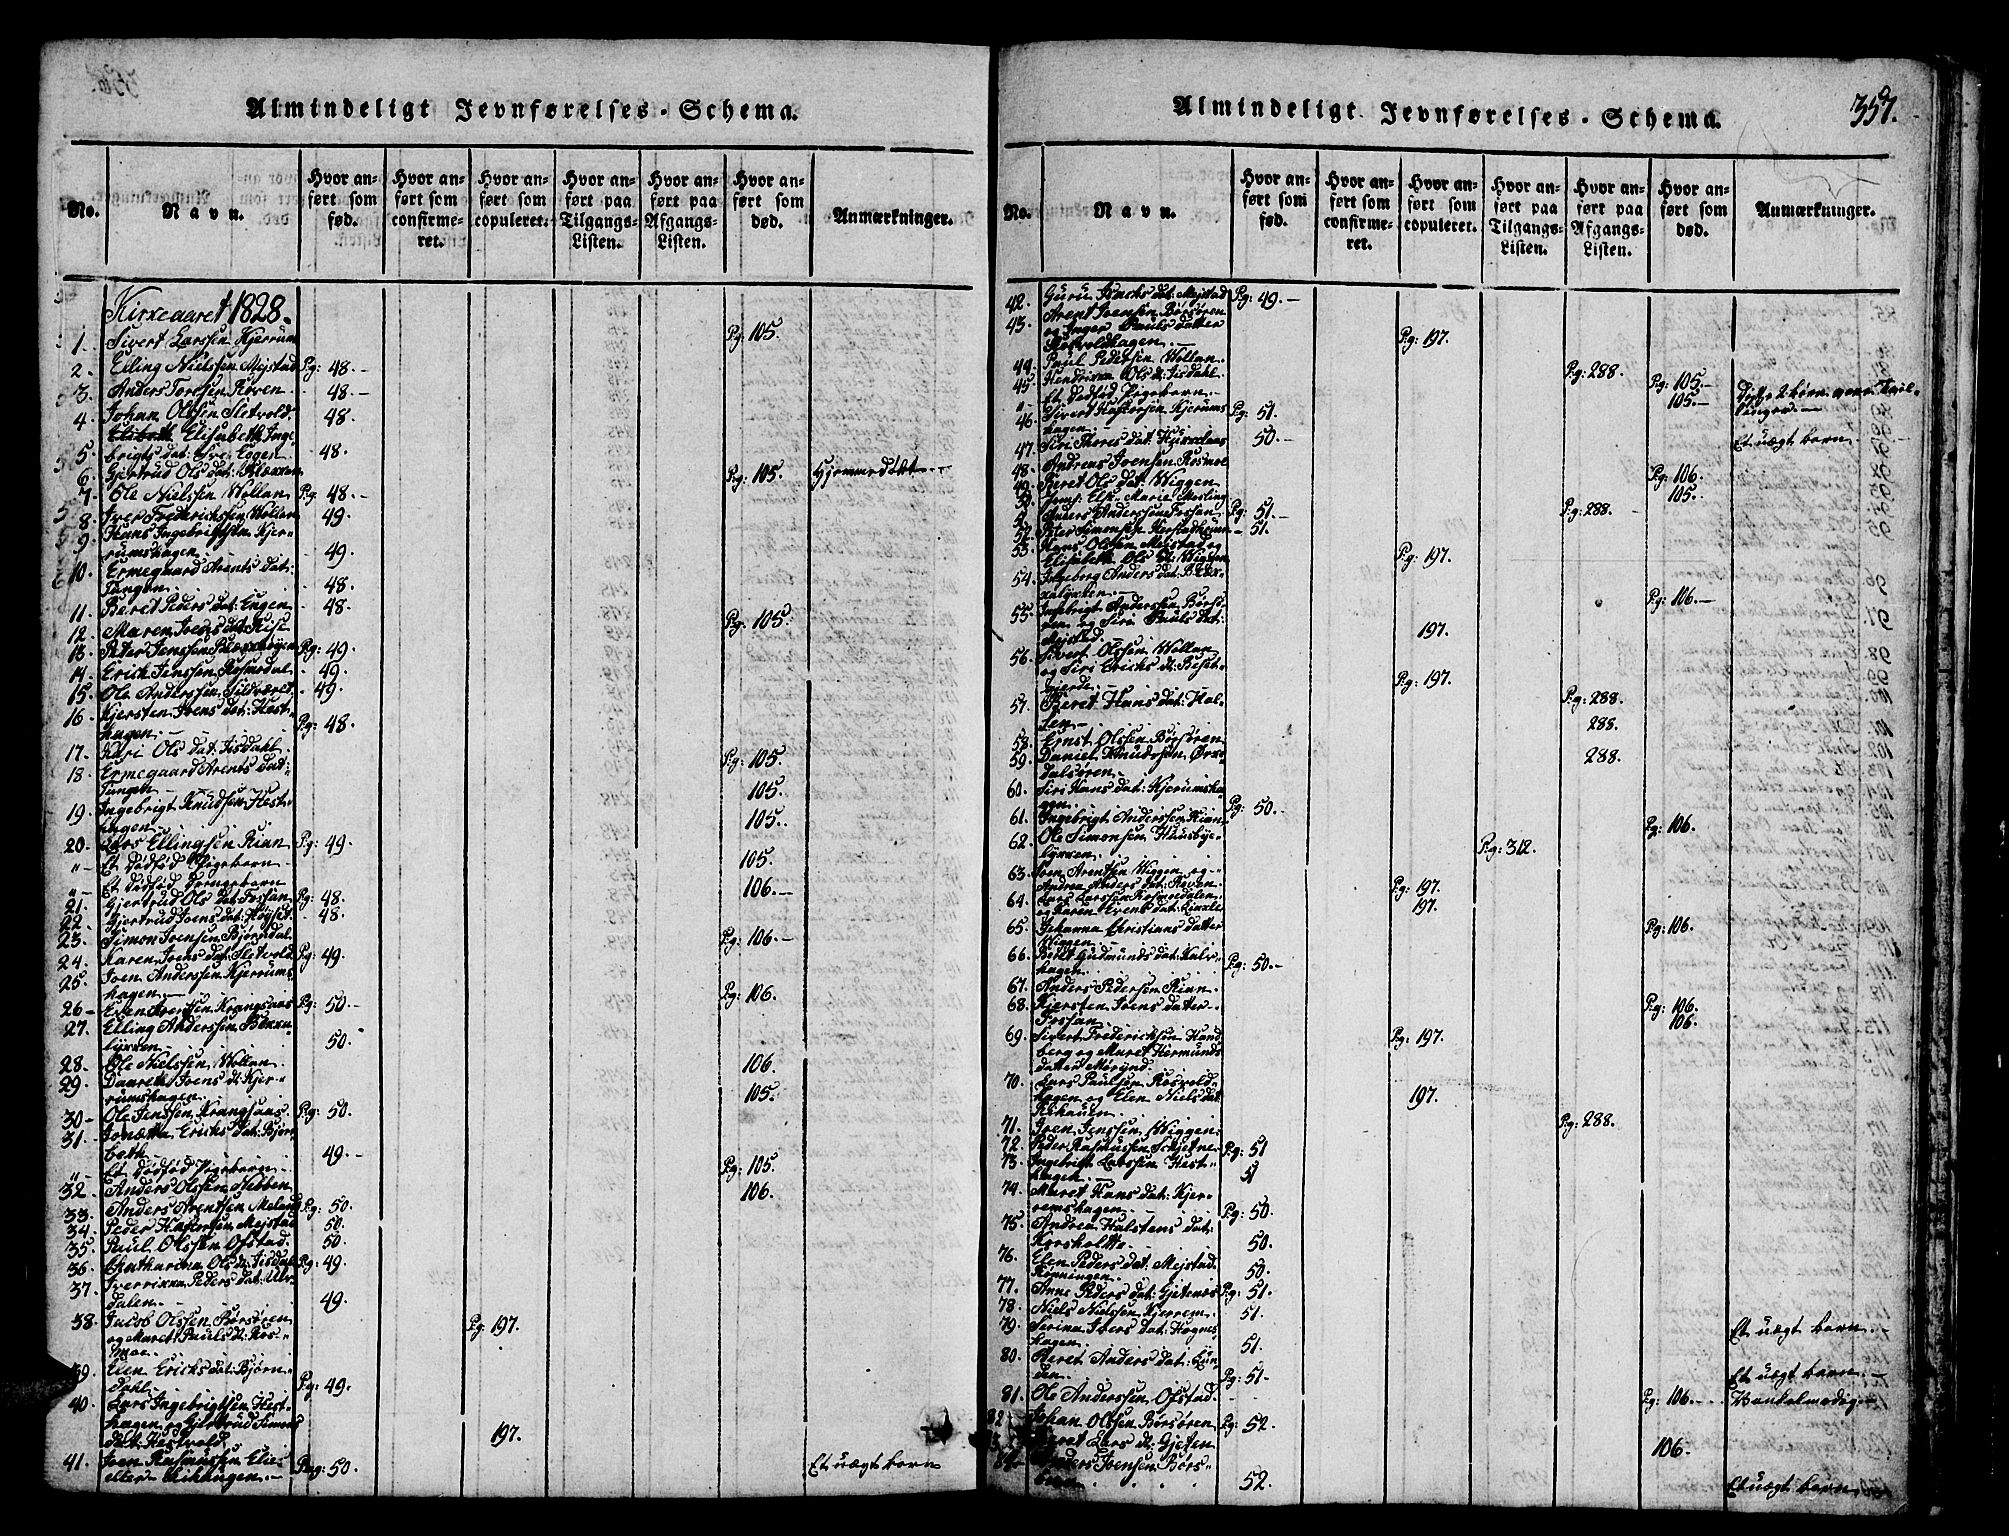 Almindeligt Jevnførelses-Schema.
No.
Navn.
Hvor anført som fød.
Hvor anført som confirmeret.
Hvor anført som copuleret.
Hvor anført paa Tilgangs-Listen.
Hvor anført paa Afgangs-Listen.
Hvor anført som død.
Anmærkninger.
Kirkeaaret 1828.
1. Sivert Larssen Kjerrum Pg: 105.
2. Elling Nielssen Mejstad Pg: 48.-
3. Anders Torssen Røven 48.-
4. Johan Olssen Sletvold 48.
Elisabeth Inge-
5. brigts dat: Øvre Eggen 48.
6. Gjertrud Ols dat: Pg: 105. Hjemmedøbt
7. Ole Nielssen Wollan Pg. 48.-
8. Iver Frederichssen Wollan 49.
9. Hans Ingebrigtsen Kjer-
rumshagen 49.
10. Ermegaard Arents dat:
Tangen 48.
11. Beret Peders dat: Engen 48.
12. Maren Joens dat: Pg: 105.
13. Peter Jenssen Pg: 49.
14. Erich Jenssen Rosmedal 49.
15. Ole Anderssen 49.
16. Kjersten Joens dat: Hest-
hagen Pg: 48.
17. Kari Ols dat: Jisdahl Pg: 105.
18. Ermegaard Arents dat:
Tangen 105.
19. Ingebrigt Knudsen Hest-
hagen 105.
20. Lars Ellingsen Rian Pg: 49.
" Et dødfød Pigebarn 105.
" Et dødfød Drengebarn 106.-
21. Gjertrud Ols dat: Fossan Pg: 48.
22. Gjertrud Joens dat: Høyset 48.
23. Simon Joensen Bjørndal Pg: 106.-
24. Karen Joens dat: Sletvold Pg: 49.
25. Joen Anderssen Kjerrums
hagen Pg: 106.
26. Even Arentsen Krangsaas Pg: 50-
27. Elling Anderssen
lykken 50.
28. Ole Nielssen Wollan 106.
29. Daareth Joens d: Kjer-
rumshagen 105.
30. Ole Jenssen Krangsaas Pg: 50.
31. Ericks dat: Bjørn
beth 49.-
" Et dødfød Pigebarn Pg: 105.
32. Anders Olssen Nebben 106.
33. Anders Arentsen Meland Pg: 50.
34. Peder Haftorsen Mejstad 50.
35. Paul Olssen Ofstad 50.
36. Chatharina Ols d: Jisdal Pg: 49.
37. Peders dat: Ulv
dalen 49.
38. Jacob Olssen Børsøren
og Maret Pauls d: Ros-
moe Pg: 197.
39. Elen Ericks dat: Bjørn-
dahl Pg: 49.
40. Lars Ingebrigtsen Hest-
hagen og Gjertrud Simons
dat: Hestvold 197.
41. Joen Rasmussen Elies
eller Pag: 50. Et uægt barn
Almindeligt Jevnførelses-Schema.
357.
No.
Navn.
Hvor anført som fød.
Hvor anført som confirmeret.
Hvor anført som copuleret.
Hvor anført paa Tilgangs-Listen.
Hvor anført paa Afgangs-Listen.
Hvor anført som død.
Anmærkninger.
42. Guru Isachs dat: Mejstad Pg: 49.-
43. Arent Joensen Børsøren
og Inger Pauls datter
Rosvoldhagen Pg: 197.
44. Paul Pedersen Wollan Pg: 288.
45. Hendrikka Ols d: Jisdahl Pg: 105.-
" Et dødfød Pigebarn 105.- Disse 2 børn vare Tvil-
linger
46. Sivert Haftorsen Kjerrums
hagen Pg: 51.
47. Siri Thores dat: 50.- Et uægt barn
48. Andreas Joensen Rosmoe Pg: 106.
49. Beret Ols dat: Wiggen 105.
50. Jomf: Else Marie Mesling Pg: 288.
51. Anders Anderssen Fossan Pg: 51.-
52. Peter Simonsen 51.
53. Hans Olssen Mejstad og
Elisabeth Ols d: Wiggen Pg: 197.
54. Ingeborg Anders dat:
Pg: 106.-
55. Ingebrigt Anderssen Børsø-
ren og Siri Pauls dat:
Mejstad 197.
56. Sivert Olssen Wollan
og Siri Ericks d: Beset-
gjerde Pg: 197.
57. Beret Hans dat: Hol-
sen Pg: 288.
58. Ernst Olssen Børsøren 288.
59. Daniel Knudssen Ørke-
dalsøren 288.
60. Siri Hans dat: Kjerumsha-
gen Pg: 50.
61. Ingebrigt Anderssen Rian Pg: 106.
62. Ole Simonsen Huusbye-
lykken Pg: 312.
63. Joen Arentsen Wiggen og
Andrea Anders dat: Røven Pg: 197.
64. Lars Larssen Rosmedalen
og Karen Evens dat: 197.
65. Johanna Christians datter
Wigen Pg: 106.
66. Beret Gudmunds dat: Kalv-
hagen Pg: 50.-
67. Anders Pedersen Rian Pg: 106.
68. Kjersten Joens datter
Fossan 106.
69. Sivert Frederichsen Hund
berg og Maret Hermunds
datter Pg: 197.
70. Lars Paulsen Rosvold-
hagen og Elen Niels dat
197.
71. Joen Jenssen Wiggen Pg: 288.
72. Peder Rasmussen Schjetne Pg: 51
73. Ingebrigt Larssen Hest-
hagen 51
74. Maret Hans dat: Kjer-
remshagen Pg: 50.
75. Andrea Halstens dat:
50.
76. Elen Peders dat: Mejstad
Rønningen 50.
77. Anne Peders dat: Gjetenes Pg: 51.
78. Niels Nielssen Kjerrem 51.
79. Serina Ivers dat: Hognes
hagen 51. Et uægt barn.
80. Beret Anders dat: Lun
den Pg: 51- Et uægt barn
81. Ole Anderssen Ofstad Pg: 106. Vankelmodig
82. Johan Olssen Børsøren Pg: 52.
83. Beret Lars d: Gjeten 106.
84. Anders Joensen Børs-
52. Et uægt barn.